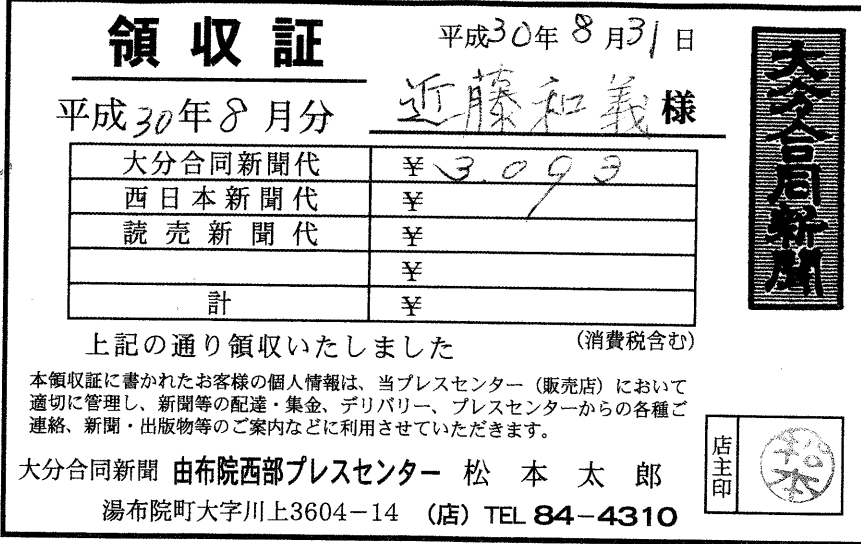 領収証
平成30年8月31日
平成30年8月分
近藤和義様
大分合同新聞代 ¥3.093
西日本新聞代 ¥
読売新聞代 ¥
¥
計 ¥
上記の通り領収いたしました
(消費税含む)
本領収証に書かれたお客様の個人情報は、当プレスセンター（販売店）において
適切に管理し、新聞等の配達・集金、デリバリー、プレスセンターからの各種ご
連絡、新聞・出版物等のご案内などに利用させていただきます。
大分合同新聞 由布院西部プレスセンター 松本太郎
湯布院町大字川上3604-14 (店) TEL 84-4310
大分合同新聞
店主印
松本